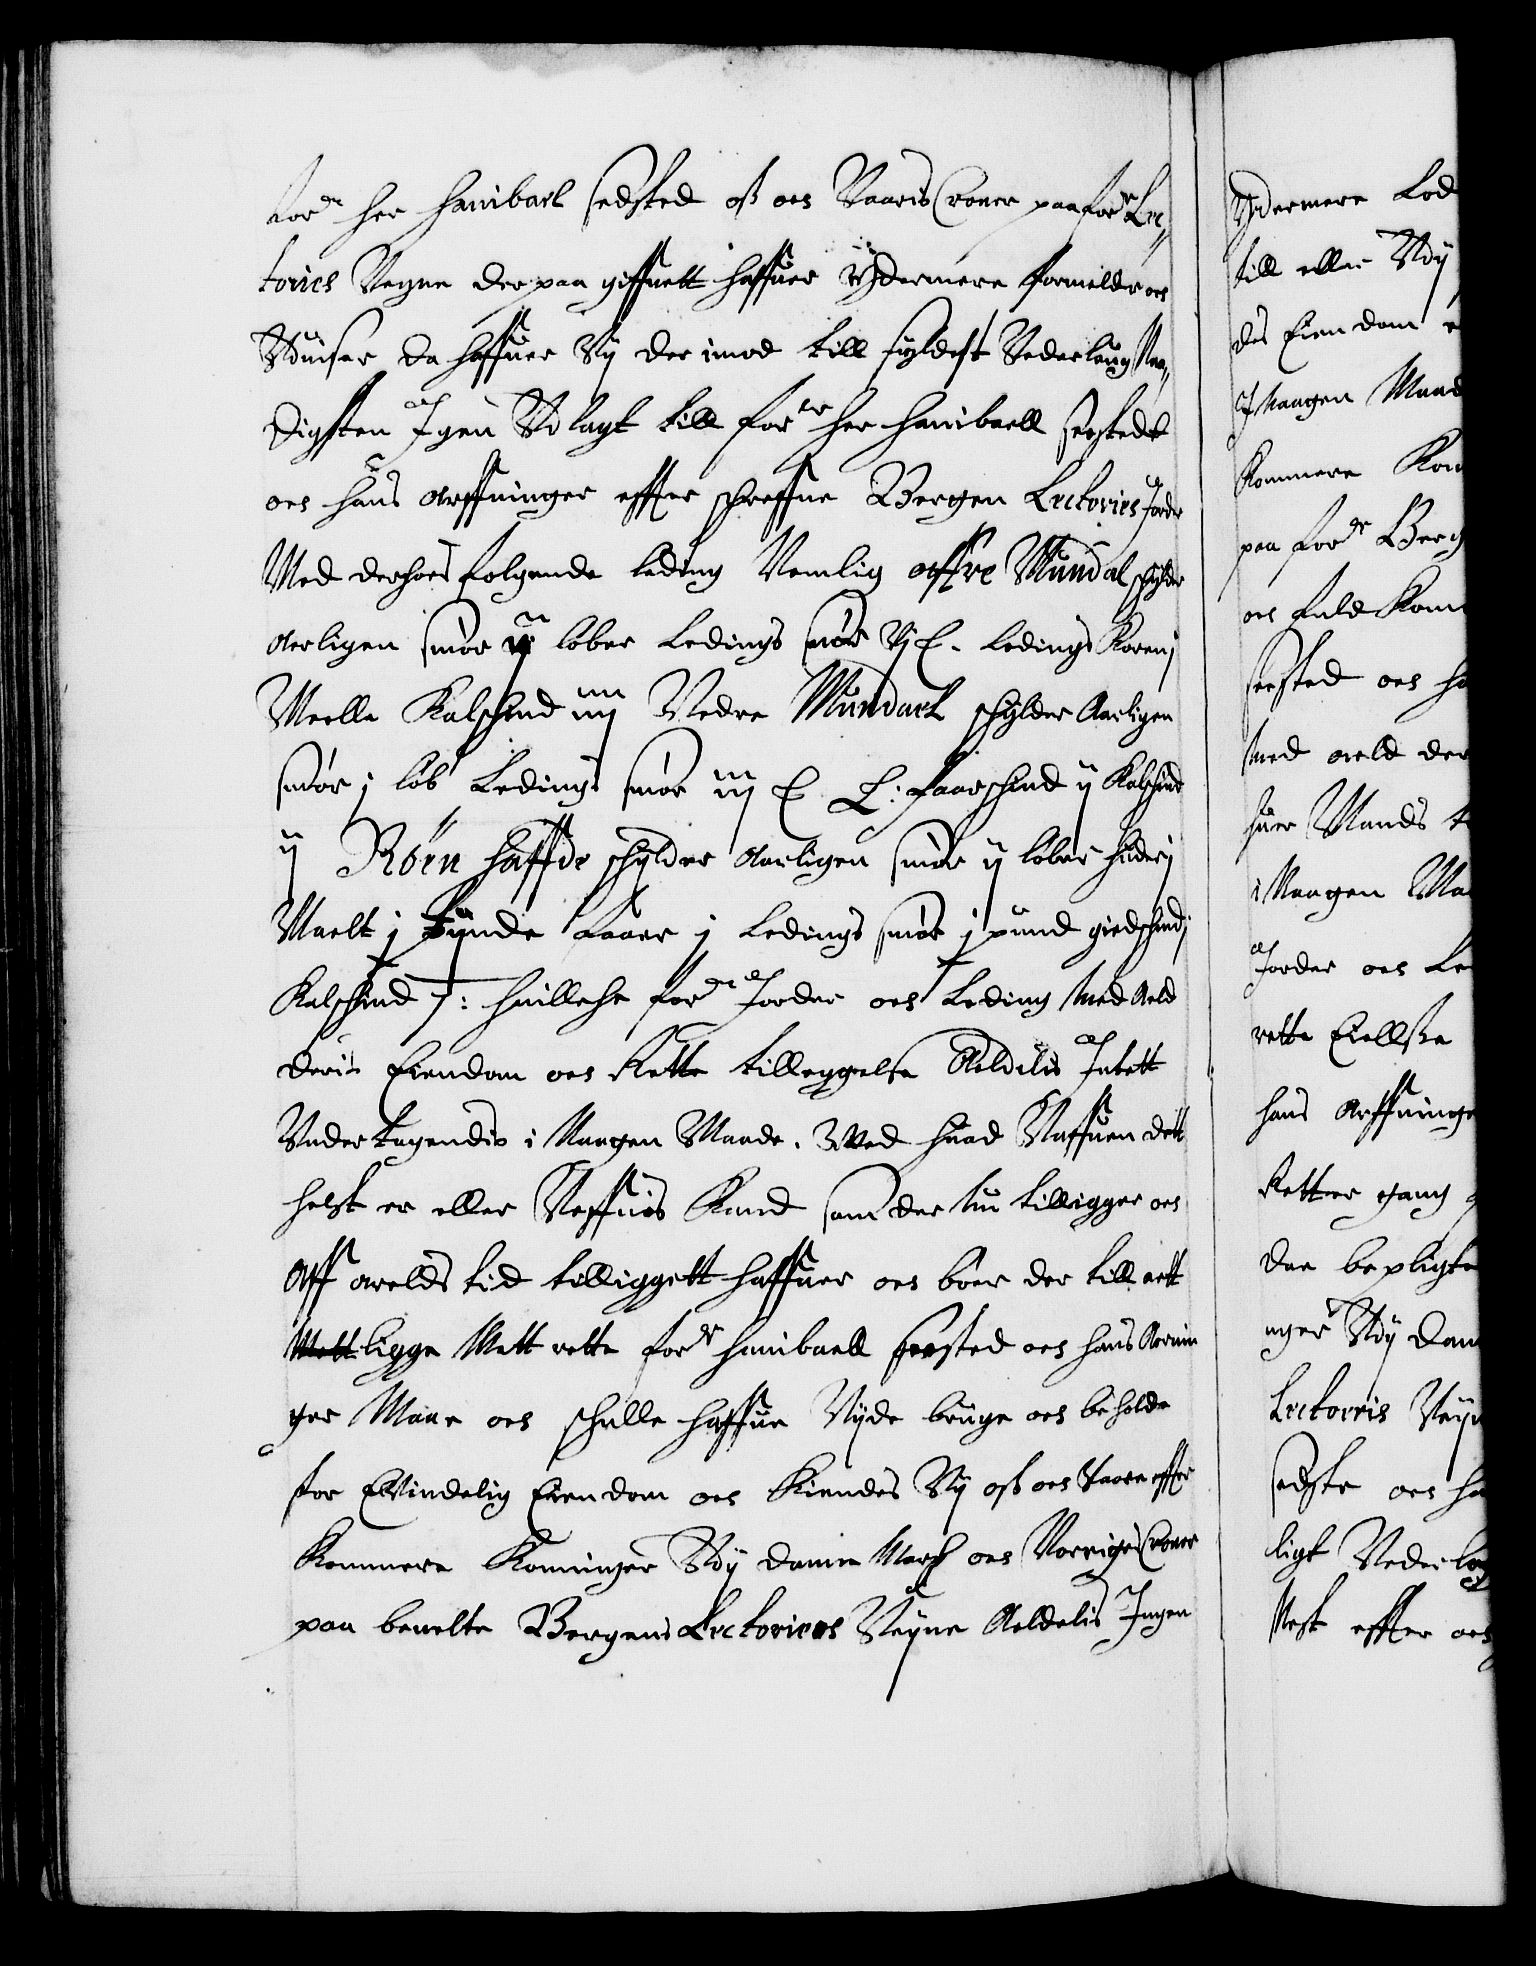 forde her hanibael sehsted oß och Vaaris Croner paa forde Lec,,
tories Vegne der paa giffuett haffuer Ydermere formelder och
Vduiser da haffuer Vy der imod till fyldest Vederlaug Naa,,
digsten Igen Vdlagt till forde her hanibaell seested
och hans Arffuinger effter schreffne Bergen Lectories Jorder
Med derhoes folgende leding Nemlig offre Mundal schylder
Aarligen smör ij löber Ledings smör vj L. Ledings Koren j
Meelle Kalschind iiij Nedre Mundaell schylder Aarligen
smör j löb Ledings smör iij L faarschind ij Kalschind
ij Röen haffde schylder Aarligen smör ij löber huder j
Maelt j tynde faaer j Ledings smör j pund giedschind j
Kalschind j: huillche forde Jorder och Leding med Aeld
deris Eiendom och Rette tilleggelse Aeldelis Intett
Vndertagendis i Naagen Maade. Med huad Naffuen dett
helst er eller Neffnis Kand som der Nu tilligger och
Aff arelds tid tilliggett haffuer och böer der till att
ligge Mett rette forde hanibaell seested och hans Aruin
ger Maae och schulle haffue Nyde bruge och beholde
for Evindelig Eiendom och Kiendes Vy oß och Vaare effter
Kommere Konninger Vdj Danmarch och Norriges Croner
paa benelte Bergens Lectories Vegne Aeldelis Ingen
Ydermere Lod
till eller Vdj
des Eiendom
I Naagen Maad
Kommere Kon
paa forde Berg
och fuld Kom
seested och ha
med aeld der
huer Mands
i Naagen Ma
Jorder och Le
rette
hans Arffuinge
Retter gang
der bepligte
nger Vdj Dan
Lectories Vegn
sehste och ha
ligt Vederlag
Nest effter och